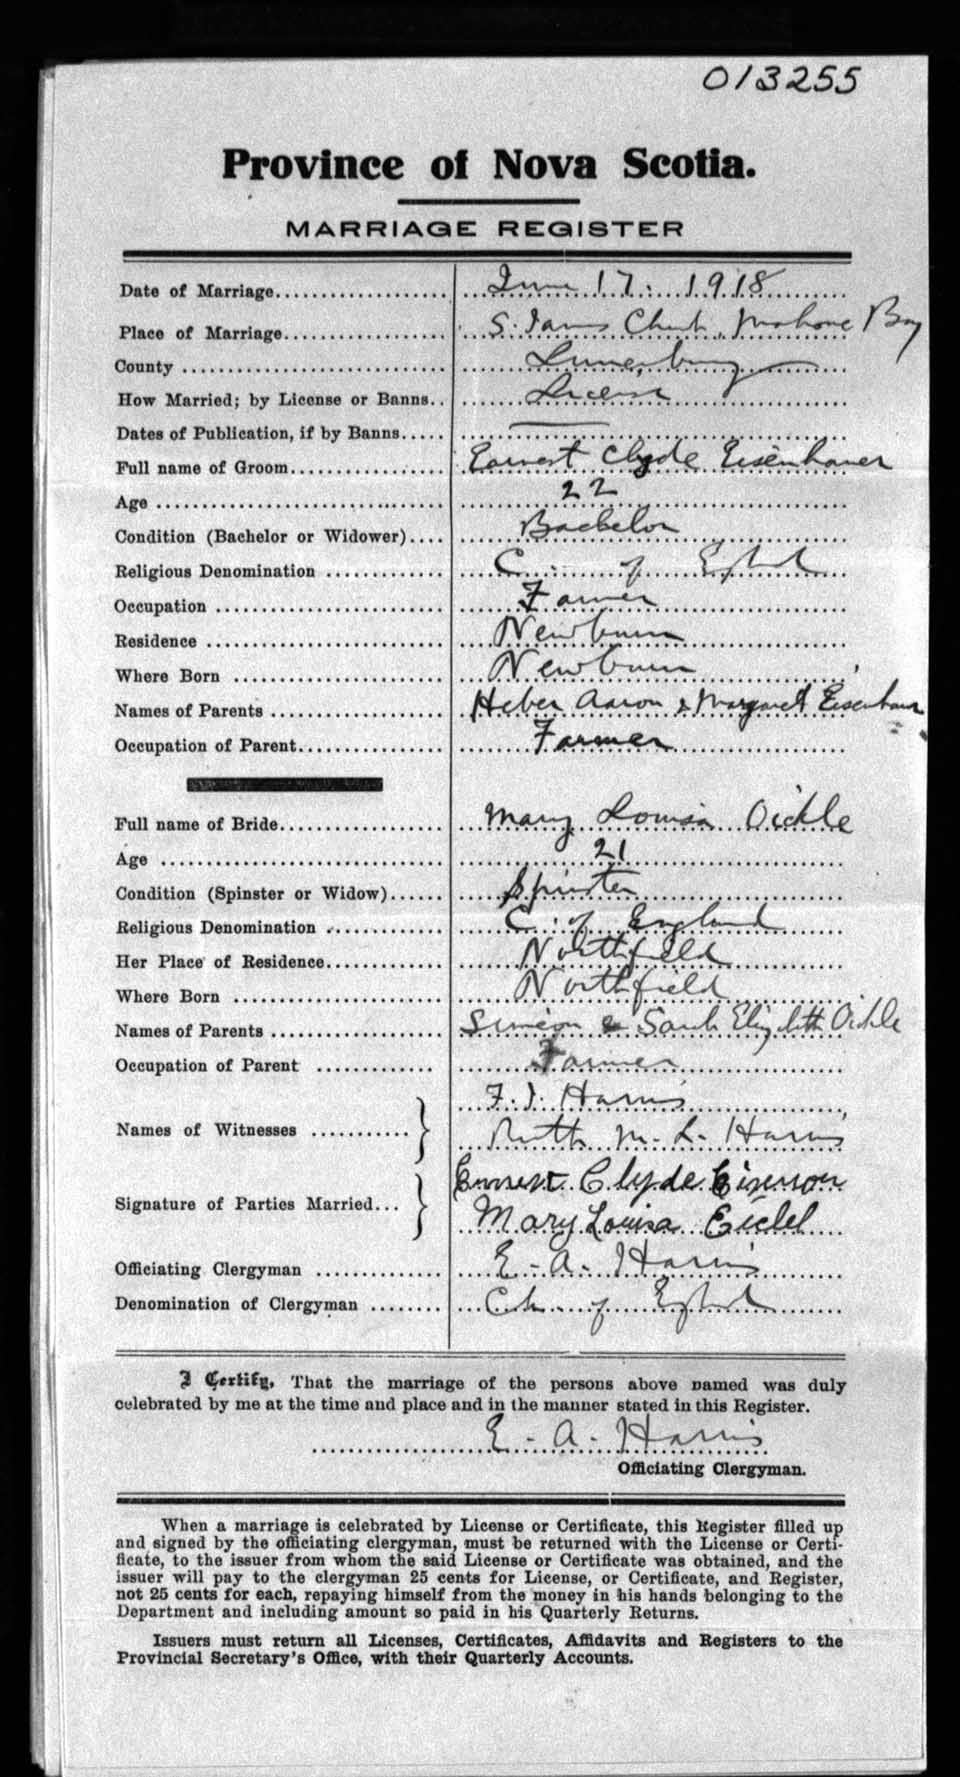 013255
Province of Nova Scotia.
MARRIAGE REGISTER
Date of Marriage June 17. 1918
Place of Marriage S. James Church, Mahone Bay
County Lunenburg
How Married; by License or Banns License
Dates of Publication, if by Banns
Full name of Groom Earnest Clyde Eisenhauer
Age 22
Condition (Bachelor or Widower) Bachelor
Religious Denomination C. of England
Occupation Farmer
Residence Newburn
Where Born Newburn
Names of Parents Heber Aaron & Margaret Eisenhauer
Occupation of Parent Farmer
Full name of Bride Mary Louisa Oickle
Age 21
Condition (Spinster or Widow) Spinster
Religious Denomination C. of England
Her Place of Residence Northfield
Where Born Northfield
Names of Parents Simeon & Sarah Elizabeth Oickle
Occupation of Parent Farmer
F. I. Harris
Names of Witnesses
Ruth M. L. Harris
Ernest Clyde
Signature of Parties Married
Mary Louisa Eickel
Officiating Clergyman E. A. Harris
Denomination of Clergyman Ch. of England
I Certify, That the marriage of the persons above named was duly
celebrated by me at the time and place and in the manner stated in this Register.
E. A. Harris
Officiating Clergyman.
When a marriage is celebrated by License or Certificate, this Register filled up
and signed by the officiating clergyman, must be returned with the License or Certi-
ficate, to the issuer from whom the said License or Certificate was obtained, and the
issuer will pay to the clergyman 25 cents for License, or Certificate, and Register,
not 25 cents for each, repaying himself from the money in his hands belonging to the
Department and including amount so paid in his Quarterly Returns.
Issuers must return all Licenses, Certificates, Affidavits and Registers to the
Provincial Secretary's Office, with their Quarterly Accounts.